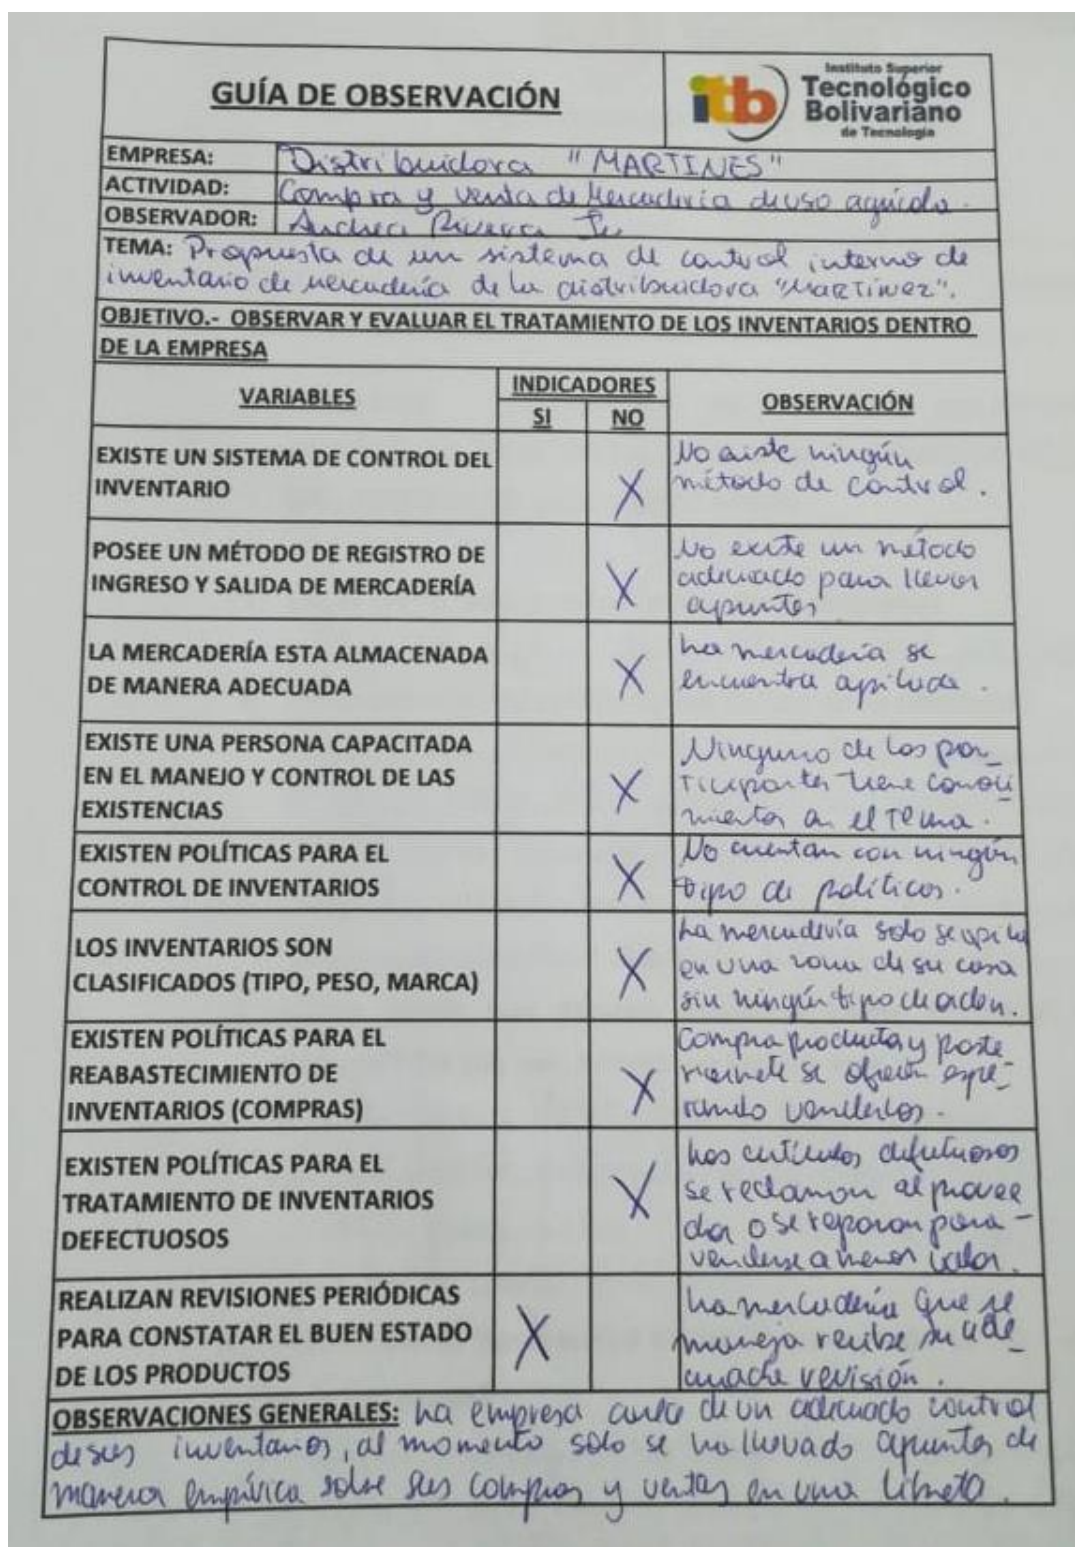 GUÍA DE OBSERVACIÓN
itb
Instituto Superior
Tecnológico
Bolivariano
de Tecnología
EMPRESA: Distribuidora "MARTINES"
ACTIVIDAD: Compra y venta de Mercadería de uso agrícola.
OBSERVADOR: Andrea Rivera
TEMA: Propuesta de un sistema de control interno de
inventario de mercadería de la distribuidora "MARTINEZ".
OBJETIVO.- OBSERVAR Y EVALUAR EL TRATAMIENTO DE LOS INVENTARIOS DENTRO
DE LA EMPRESA
VARIABLES
INDICADORES
SI
NO
OBSERVACIÓN
EXISTE UN SISTEMA DE CONTROL DEL
INVENTARIO
X
No existe ningún
método de control.
POSEE UN MÉTODO DE REGISTRO DE
INGRESO Y SALIDA DE MERCADERÍA
X
No existe un método
adecuado para llevar
apuntes
LA MERCADERÍA ESTA ALMACENADA
DE MANERA ADECUADA
X
La mercadería se
encuentra apilada.
EXISTE UNA PERSONA CAPACITADA
EN EL MANEJO Y CONTROL DE LAS
EXISTENCIAS
X
Ninguno de los par_
ticipantes tiene conoci_
mientos en el tema.
EXISTEN POLÍTICAS PARA EL
CONTROL DE INVENTARIOS
X
No cuentan con ningún
tipo de políticas.
LOS INVENTARIOS SON
CLASIFICADOS (TIPO, PESO, MARCA)
X
La mercadería solo se apila
en una zona de su casa
sin ningún tipo de orden.
EXISTEN POLÍTICAS PARA EL
REABASTECIMIENTO DE
INVENTARIOS (COMPRAS)
X
Compra productos y poste_
riormente se ofrecen espe_
rando venderlos.
EXISTEN POLÍTICAS PARA EL
TRATAMIENTO DE INVENTARIOS
DEFECTUOSOS
X
Los artículos defectuosos
se reclaman al provee
dor o se reparan para -
venderse a menor valor.
REALIZAN REVISIONES PERIÓDICAS
PARA CONSTATAR EL BUEN ESTADO
DE LOS PRODUCTOS
X
La mercadería que se
maneja recibe su ade_
cuada revisión.
OBSERVACIONES GENERALES: La empresa carece de un adecuado control
de sus inventarios, al momento solo se ha llevado apuntes de
manera empírica sobre sus compras y ventas en una libreta.